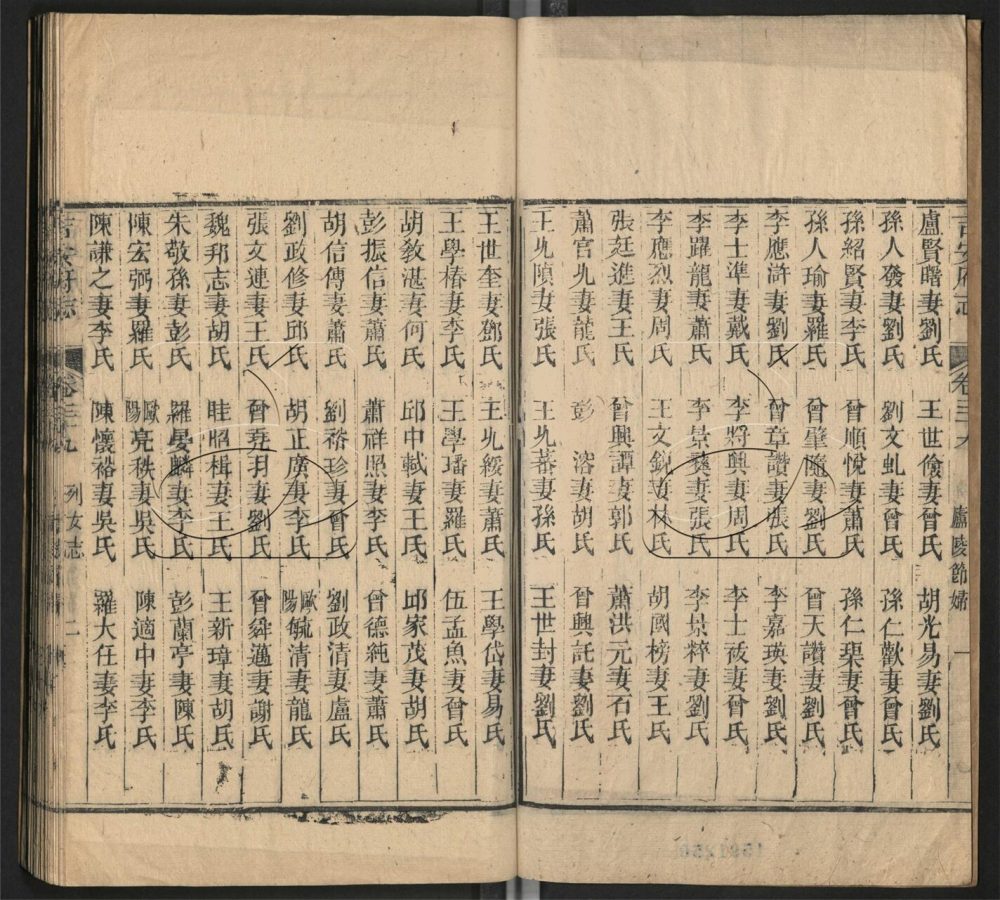 吉安府志 卷三十九 廬陵節婦 一
盧賢曙妻劉氏 王世儉妻曾氏 胡光易妻劉氏
孫人發妻劉氏 劉文虬妻曾氏 孫仁歡妻曾氏
孫紹賢妻李氏 曾順悅妻蕭氏 孫仁栗妻曾氏
孫人瑜妻羅氏 曾肇隨妻劉氏 曾天讚妻劉氏
李應滸妻劉氏 曾章讚妻張氏 李嘉瑛妻劉氏
李士準妻戴氏 李將興妻周氏 李士祓妻曾氏
李躍龍妻蕭氏 李景燹妻張氏 李景粹妻劉氏
李應烈妻周氏 王文銳妻林氏 胡國榜妻王氏
張廷進妻王氏 曾興譚妻郭氏 蕭洪元妻石氏
蕭官九妻龍氏 彭溶妻胡氏 曾興託妻劉氏
王九隕妻張氏 王九蕃妻孫氏 王世封妻劉氏
王世奎妻鄧氏 王九緩妻蕭氏 王學岱妻易氏
王學椿妻李氏 王學璠妻羅氏 伍孟魚妻曾氏
胡敎湛妻何氏 邱中軾妻王氏 邱家茂妻胡氏
彭振信妻蕭氏 蕭祥照妻李氏 曾德純妻蕭氏
胡信傳妻蕭氏 劉裕珍妻曾氏 劉政清妻盧氏
劉政修妻邱氏 胡正廣妻李氏 歐陽毓清妻龍氏
張文連妻王氏 曾堯玥妻劉氏 曾舜邁妻謝氏
魏邦志妻胡氏 眭照楫妻王氏 王新璋妻胡氏
朱敬孫妻彭氏 羅晏麟妻李氏 彭蘭亭妻陳氏
陳宏弼妻羅氏 歐陽亮秩妻吳氏 陳適中妻李氏
陳謙之妻李氏 陳懷裕妻吳氏 羅大任妻李氏
吉安府志 卷三十九 列女志 二